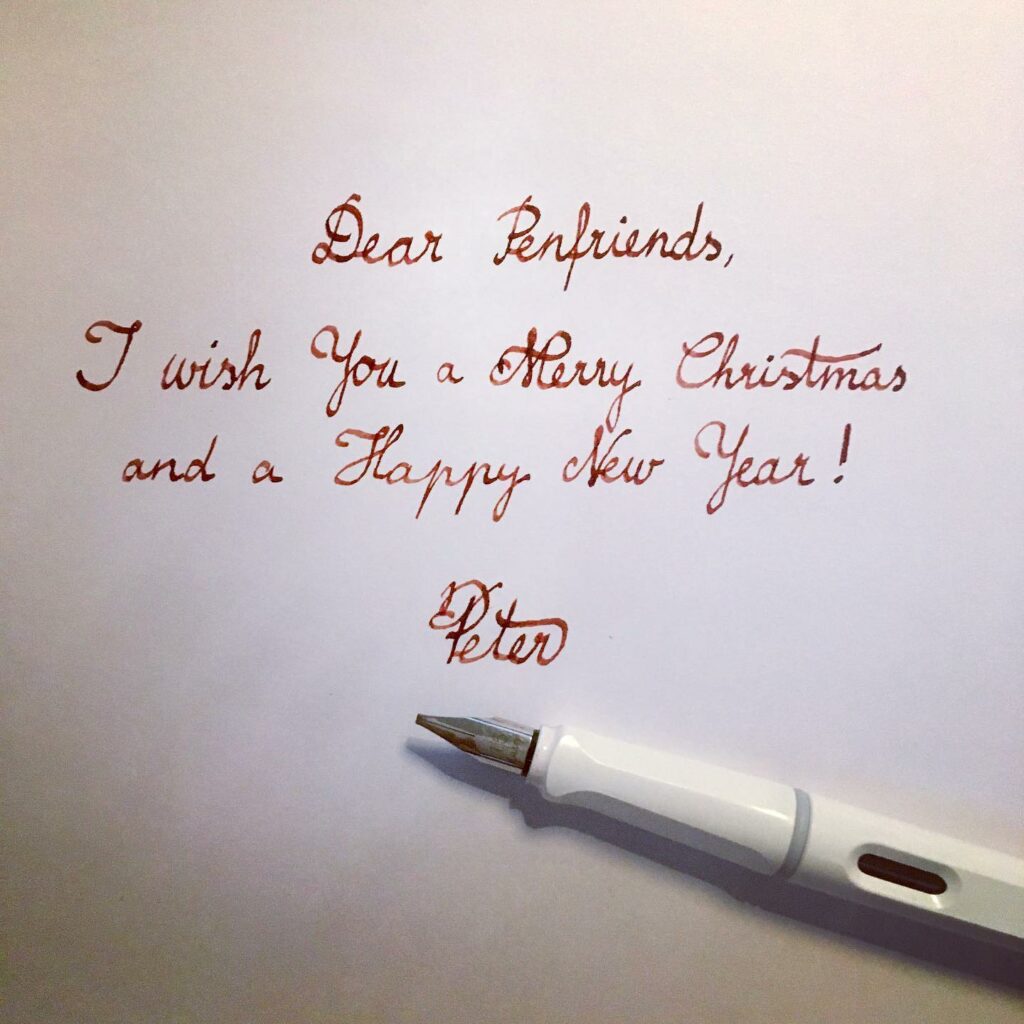 Dear Penfriends,
I wish You a Merry Christmas
and a Happy New Year!
Peter